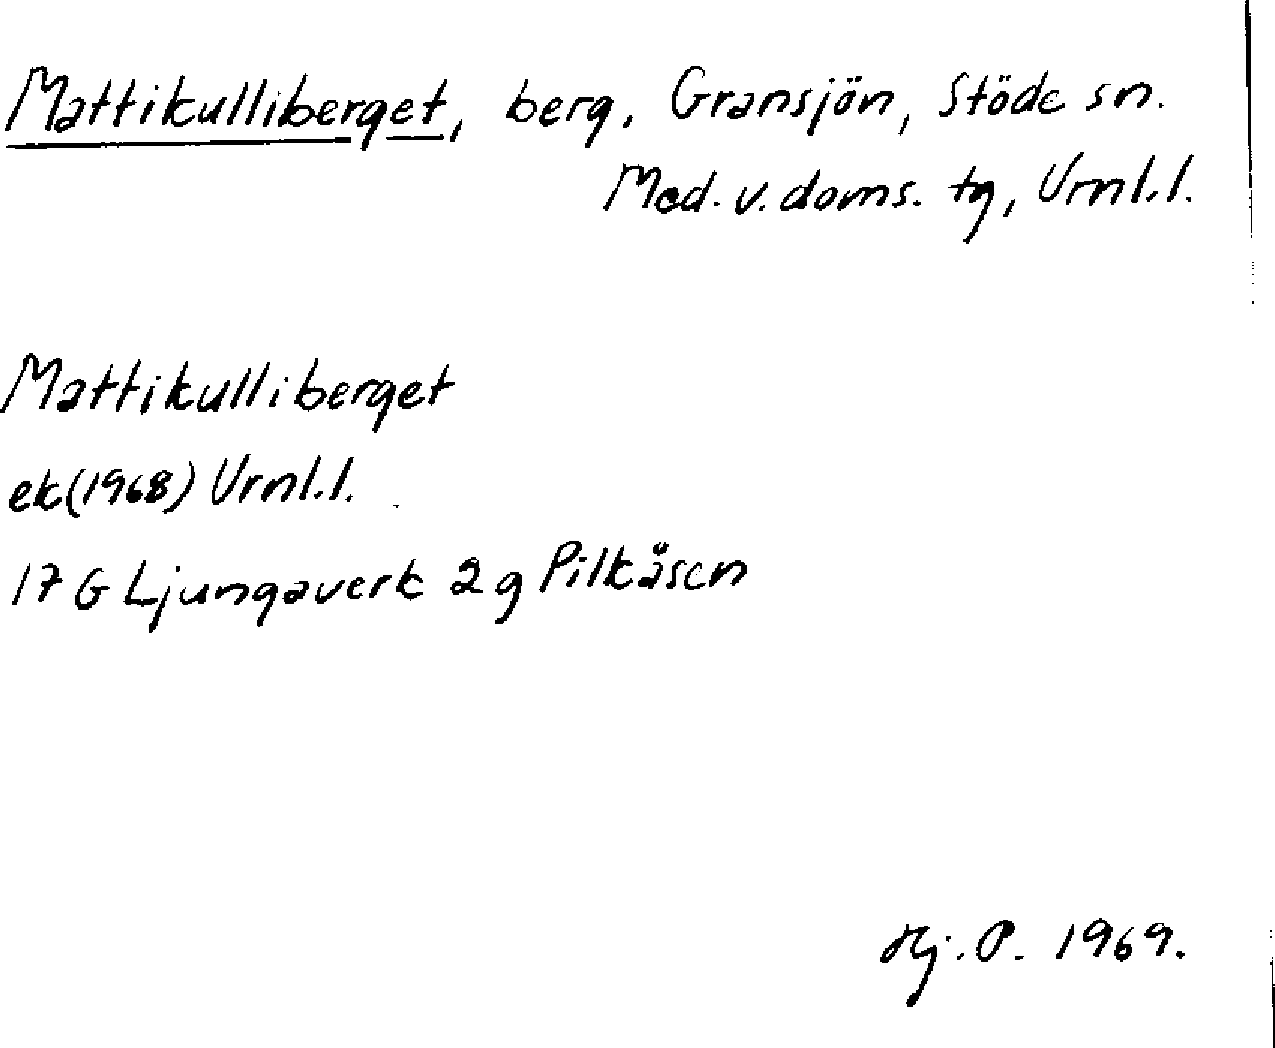 Mattikulliberget, berg, Gransjön, Stöde sn.
Med. v. doms. tg, Vrnl.l.
Mattikulliberget
ek(1968) Vrnl.l.
17 G Ljungaverk 2 g Pilkåsen
Hj. P. 1969.